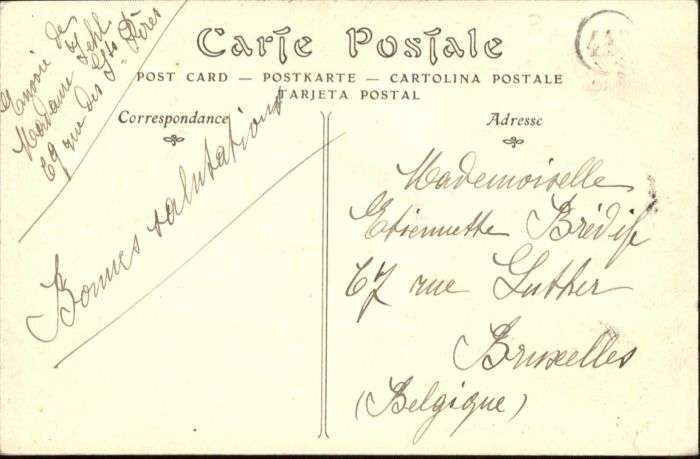 Envoi de
Madame Jehl
69 rue des Sts Pères
Carte Postale
POST CARD — POSTKARTE — CARTOLINA POSTALE
TARJETA POSTAL
Correspondance
Bonnes salutations
Adresse
Mademoiselle
Etiennette Brédif
67 rue Luther
Bruxelles
(Belgique)